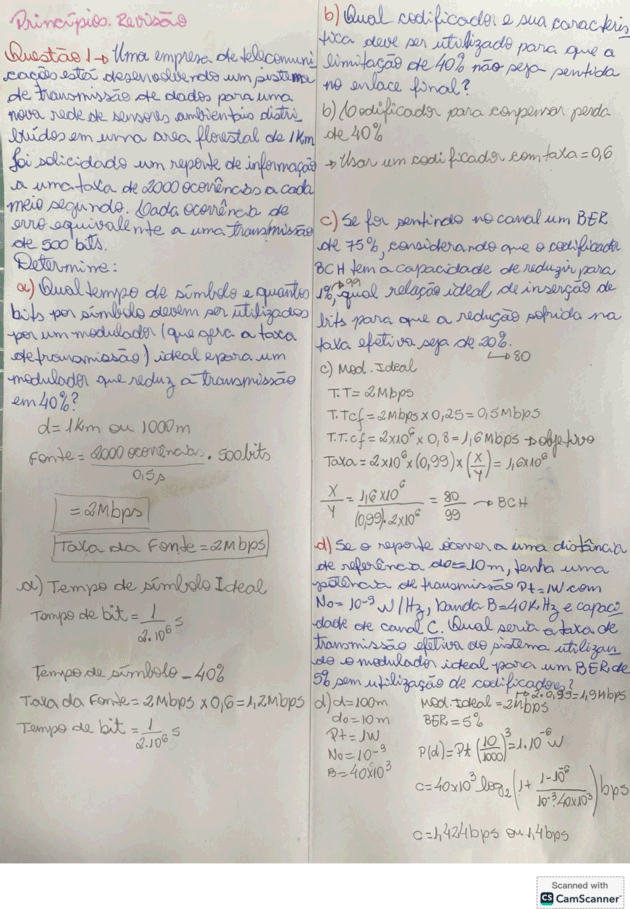 Princípios. Revisão
Questão 1 → Uma empresa de telecomuni
cação está desenvolvendo um sistema
de transmissão de dados para uma
nova rede de sensores ambientais distri
buídos em uma area florestal de 1Km
foi solicidado um reporte de informação
a uma taxa de 2000 ocorrências a cada
meio segundo. Cada ocorrência de
erro equivalente a uma transmissão
de 500 bits.
Determine:
a) Qual tempo de símbolo e quantos
bits por símbolo devem ser utilizados
por um modulador (que gera a taxa
de transmissão) ideal e para um
modulador que reduz a transmissão
em 40%?
d = 1Km ou 1000m
Fonte = 2000 ocorrência . 500 bits
0,5s
= 2Mbps
Taxa da Fonte = 2Mbps
a) Tempo de símbolo Ideal
Tempo de bit = 1 s
2.10⁶
Tempo de símbolo - 40%
Taxa da Fonte = 2Mbps x 0,6 = 1,2Mbps
Tempo de bit = 1 s
2.10⁶
b) Qual codificador e sua caracterís
tica deve ser utilizado para que a
limitação de 40% não seja sentida
no enlace final?
b) Codificador para conpensar perda
de 40%
→ Usar um codificador com taxa = 0,6
c) Se for sentindo no canal um BER
de 75%, considerando que o codificador
BCH tem a capacidade de reduzir para
→ 99
1%, qual relação ideal de inserção de
bits para que a redução sofrida na
taxa efetiva seja de 20%.
→ 80
c) Mod. Ideal
T.T = 2Mbps
T.Tcf = 2Mbps x 0,25 = 0,5Mbps
T.T.cf = 2x10⁶ x 0,8 = 1,6Mbps → objetivo
Taxa = 2x10⁶ x (0,99) x (X/Y) = 1,6x10⁶
X = 1,6x10⁶ = 80 → BCH
Y (0,99).2x10⁶ 99
d) Se o reporte ocorrer a uma distância
de referência do = 10m, tenha uma
potência de transmissão Pt = 1W com
No = 10⁻³ W/Hz, banda B = 40KHz e capaci
dade de canal C. Qual seria a taxa de
transmissão efetiva do sistema utilizan
do o modulador ideal para um BER de
5% sem utilização de codificador?
→ 2.0,95 = 1,9Mbps
d) d = 100m Mod. Ideal = 2Mbps
do = 10m BER = 5%
Pt = 1W P(d) = Pt (10/1000)³ = 1.10⁻⁶ W
No = 10⁻³
B = 40x10³
C = 40x10³ log₂ (1 + 1-10⁻⁶ / 10⁻³.40x10³) bps
C = 1,424bps ou 1,4bps
Scanned with
CS CamScanner